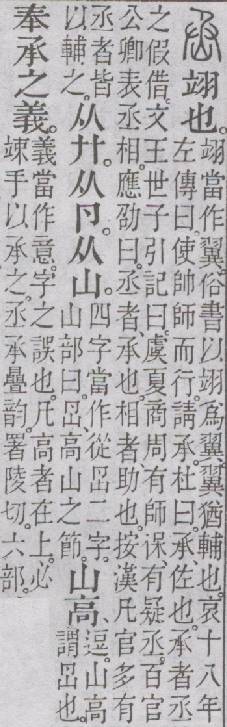 丞翊也。
翊當作翼。俗書以翊爲翼。翼猶輔也。哀十八年
左傳曰。使帥師而行。請承。杜曰。承、佐也。承者丞
之假借。文王世子引記曰。虞夏商周有師保。有疑丞。百官
公卿表丞相。應劭曰。丞者、承也。相者、助也。按漢凡官多有
丞者皆
以輔之。
从廾。从卪。从山。
四字當作從岊二字。
山部曰。岊高山之節。
山高、
逗。山高
謂岊也。
奉承之義。
義當作意。字之誤也。凡高者在上。必
竦手以承之。丞承疊韵。署陵切。六部。